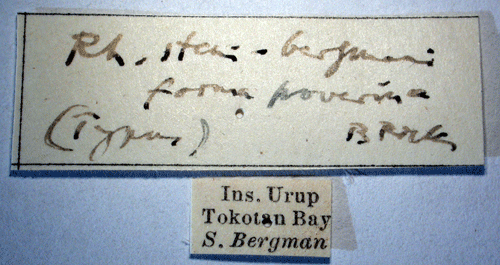 Rh. sten-bergmani
forma poverina
(Typus)
Ins. Urup
Tokotan Bay
S. Bergman